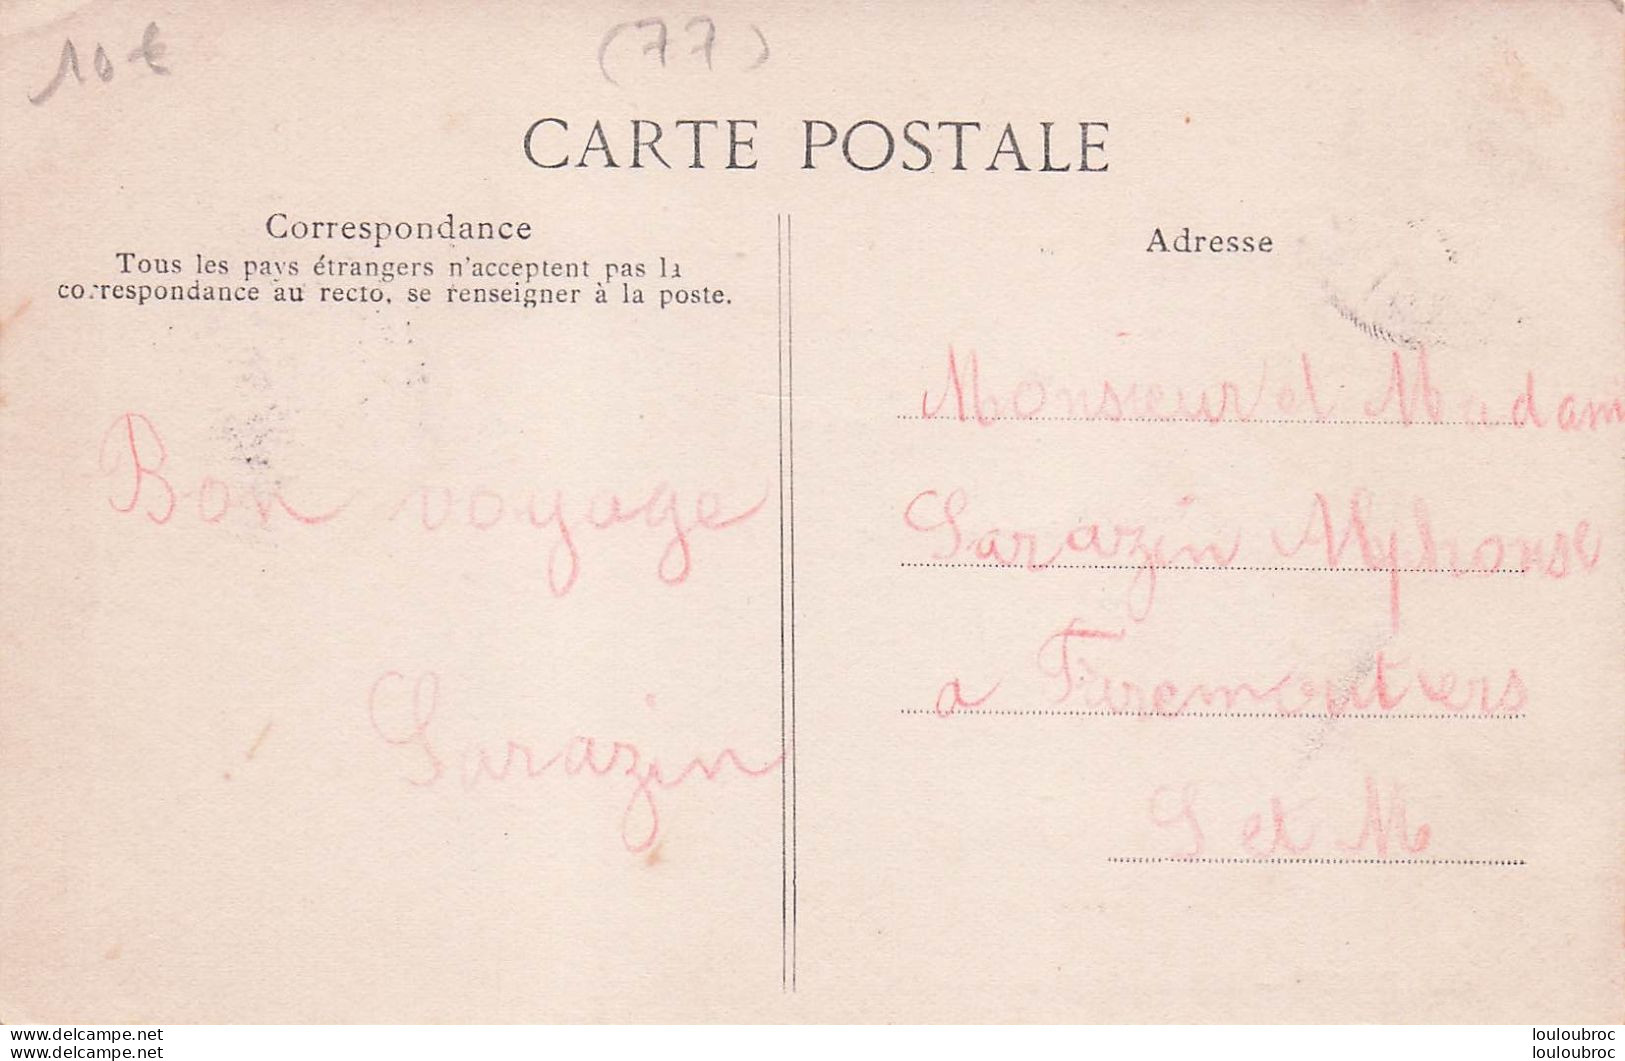 10 €
(77)
CARTE POSTALE
Correspondance
Tous les pays étrangers n'acceptent pas la
correspondance au recto, se renseigner à la poste.
Bon voyage
Sarazin
Adresse
Monsieur et Madam
Sarazin Alphonse
a Faremoutiers
S et M
www.delcampe.net
www.delcampe.net
louloubroc
louloubroc